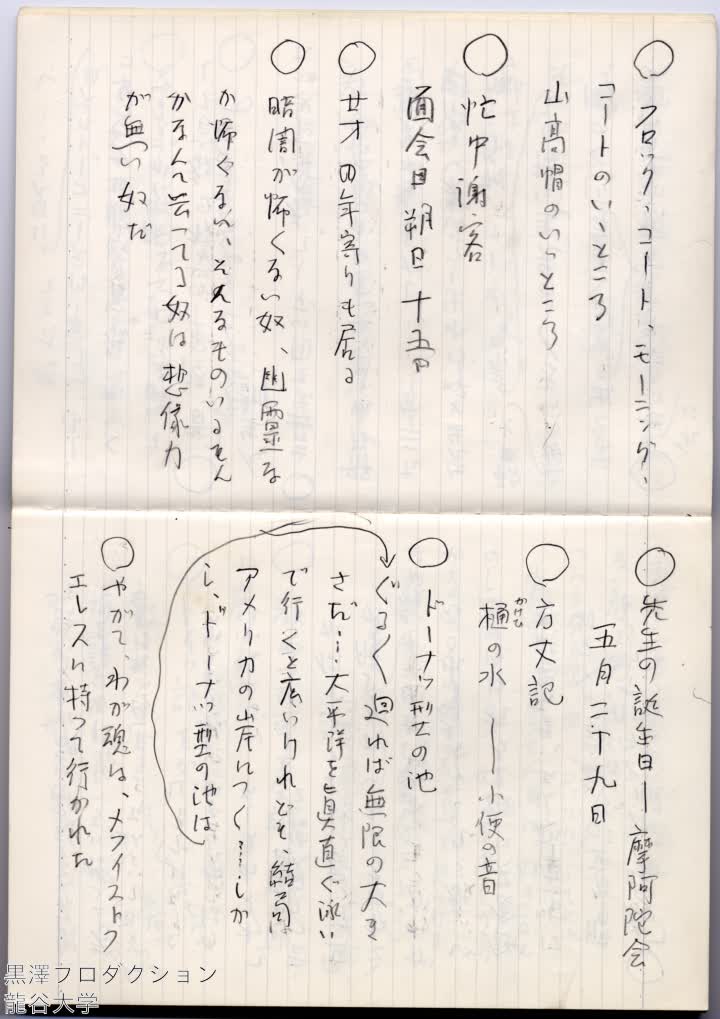 ○ フロック、コート、モーニング、
コートのいゝところ
山高帽のいゝところ
○ 忙中謝客
面会日 朔日 十五日
○ 廿才の年寄りも居る
○ 暗闇が怖くない奴、幽霊な
か怖くない、そんなものいるもん
かなんて云ってる奴は想像力
が無い奴だ
○ 先生の誕生日ー摩阿陀会
五月二十九日
○ 方丈記
樋の水 ー小便の音
かけひ
○ ドーナツ型の池
ぐるぐる廻れば無限の大き
さだ…太平洋を真直ぐ泳い
で行くと広いけれども、結局
アメリカの岸につく…しか
し、ドーナツ型の池は
○ やがて、わが魂は、メフィストフ
エレスに持って行かれた
黒澤プロダクション
龍谷大学